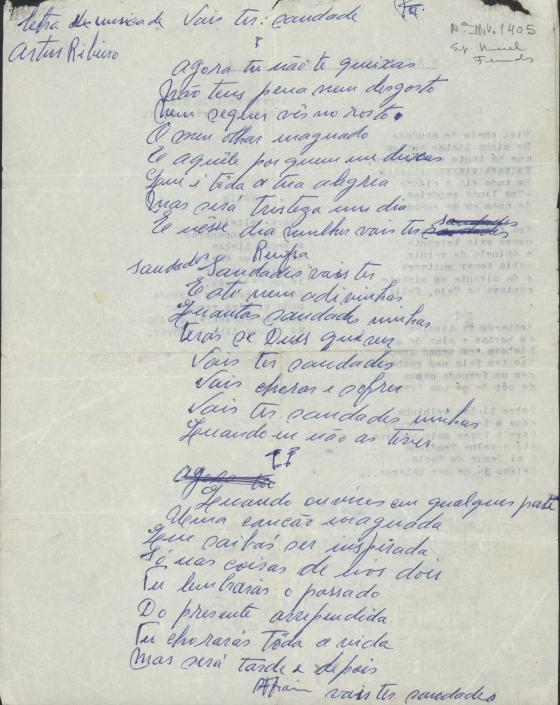 letra de musica de Vais ter: saudade
Artur Ribeiro
Nº INV. 1405
I
Agora tu não te queixas
Não tens pena nem desgosto
Nem sequer vês no rosto.
O meu olhar maguado
E aquêle por quem me deixas
Que é tôda a tua alegria
Mas será tristeza um dia
E nêsse dia mulher vais ter saudades
saudades
Saudades vais ter
E até nem adivinhas
Quantas saudades minhas
terás se Deus quizer
Vais ter saudades
Vais chorar e sofrer
Vais ter saudades minhas
Quando eu não as tiver
II
Quando ouvires em qualquer parte
Uma canção maguada
Que saibas ser inspirada
Só nas coisas de nós dois
Tu lembrarás o passado
Do presente arrependida
Tu chorarás tôda a vida
Mas será tarde e depois
vais ter saudades